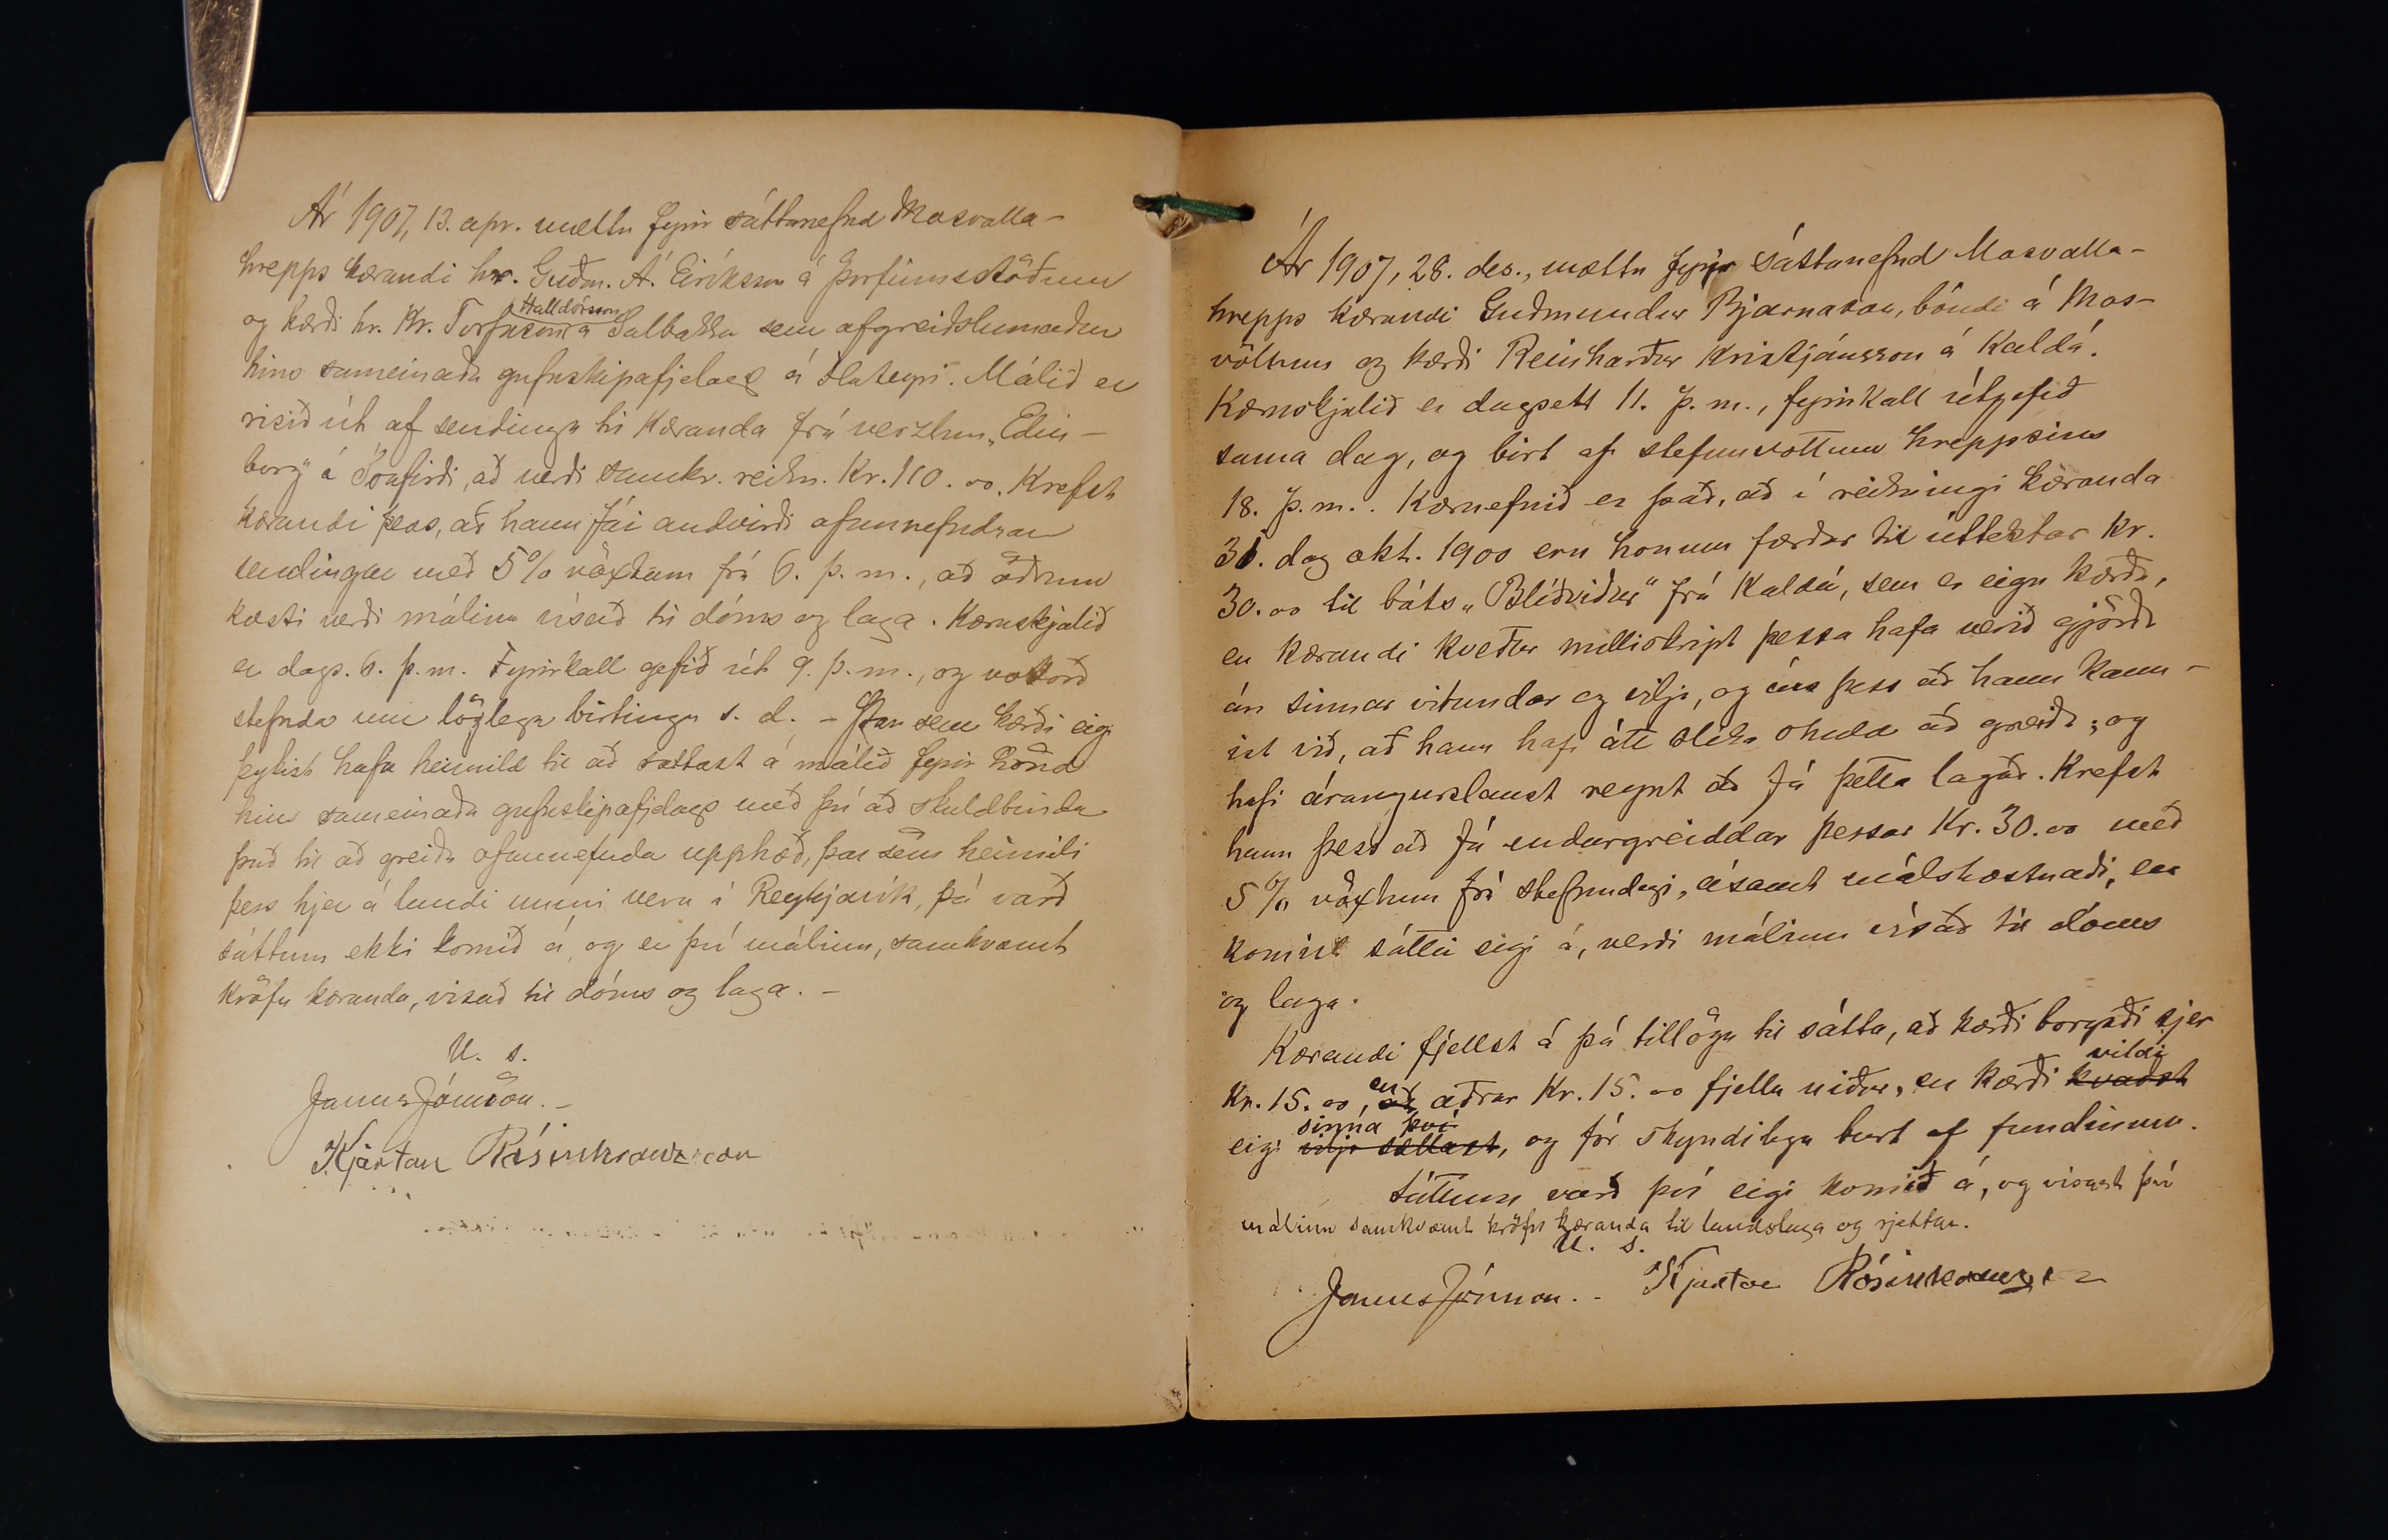 Ár 1907, 13. apr. mættu fyrir sáttanefnd Mosvalla-
hrepps kærandi hr. Guðm. Á. Eiríksson á Þorfinnsstöðum
og kærði hr. Kr. Torfason á Halldórsson Sólbakka sem afgreiðslumaður
hins sameinaða gufuskipafjelags á Flateyri. Málið er
risið út af sendingu til kæranda frá verzlun „Edin-
borg" á Ísafirði, að verði samkv. reikn. Kr. 110.00. Krefst
kærandi þess, að hann fái andvirði ofannefndrar
sendingar með 5% vöxtum frá 6. þ. m., að öðrum
kosti verði málinu vísað til dóms og laga. Kæruskjalið
er dags. 6. þ. m. Fyrirkall gefið út 9. þ. m., og vottorð
stefnda um löglega birtingu s. d. - Þar sem kærði eigi
þykist hafa heimild til að sættast á málið fyrir hönd
hins sameinaða gufuskipafjelags með því að skuldbinda
það til að greiða ofannefnda upphæð, þar sem heimili
þess hjer á landi muni vera í Reykjavík, þá varð
sáttum ekki komið á, og er því málinu, samkvæmt
kröfu kæranda, vísað til dóms og laga. -
U. s.
Janus Jónsson. -
Kjartan Rósinkranzson
Ár 1907, 28. des., mættu fyrir sáttanefnd Mosvalla-
hrepps kærandi Guðmundur Bjarnason, bóndi á Mos-
völlum og kærði Reinharður Kristjánsson á Kaldá.
Kæruskjalið er dagsett 11. þ. m., fyrirkall útgefið
sama dag, og birt af stefnuvottum hreppsins
18. þ. m.. Kæruefnið er það, að í reikningi kæranda
31. dag okt. 1900 eru honum færðar til úttektar kr.
30.00 til báts „Blíðviður" frá Kaldá, sem er eign kærða,
en kærandi kveður milliskript þessa hafa verið gjörða
án sinnar vitundar og vilja, og án þess að hann kann-
ist við, að hann hafi átt slíka skuld að greiða, og
hafi árangurslaust reynt að fá þetta lagað. Krefst
hann þess að fá endurgreiddar þessar Kr. 30.00 með
5% vöxtum frá stefnudegi, ásamt málskostnaði, en
komist sáttir eigi á, verði málinu vísað til dóms
og laga.
Kærandi fjellst á þá tillögu til sátta, að kærði borgaði sjer
Kr. 15.00, að en aðrar Kr. 15.00 fjellu niður, en kærði kvaðst vildi
eigi vilja sættast sinna því, og fór skyndilega burt af fundinum.
Sáttum varð því eigi komið á, og vísast því
málinu samkvæmt kröfu kæranda til landslaga og rjettar.
U. s.
Janus Jónsson. - Kjartan Rósinkranzson